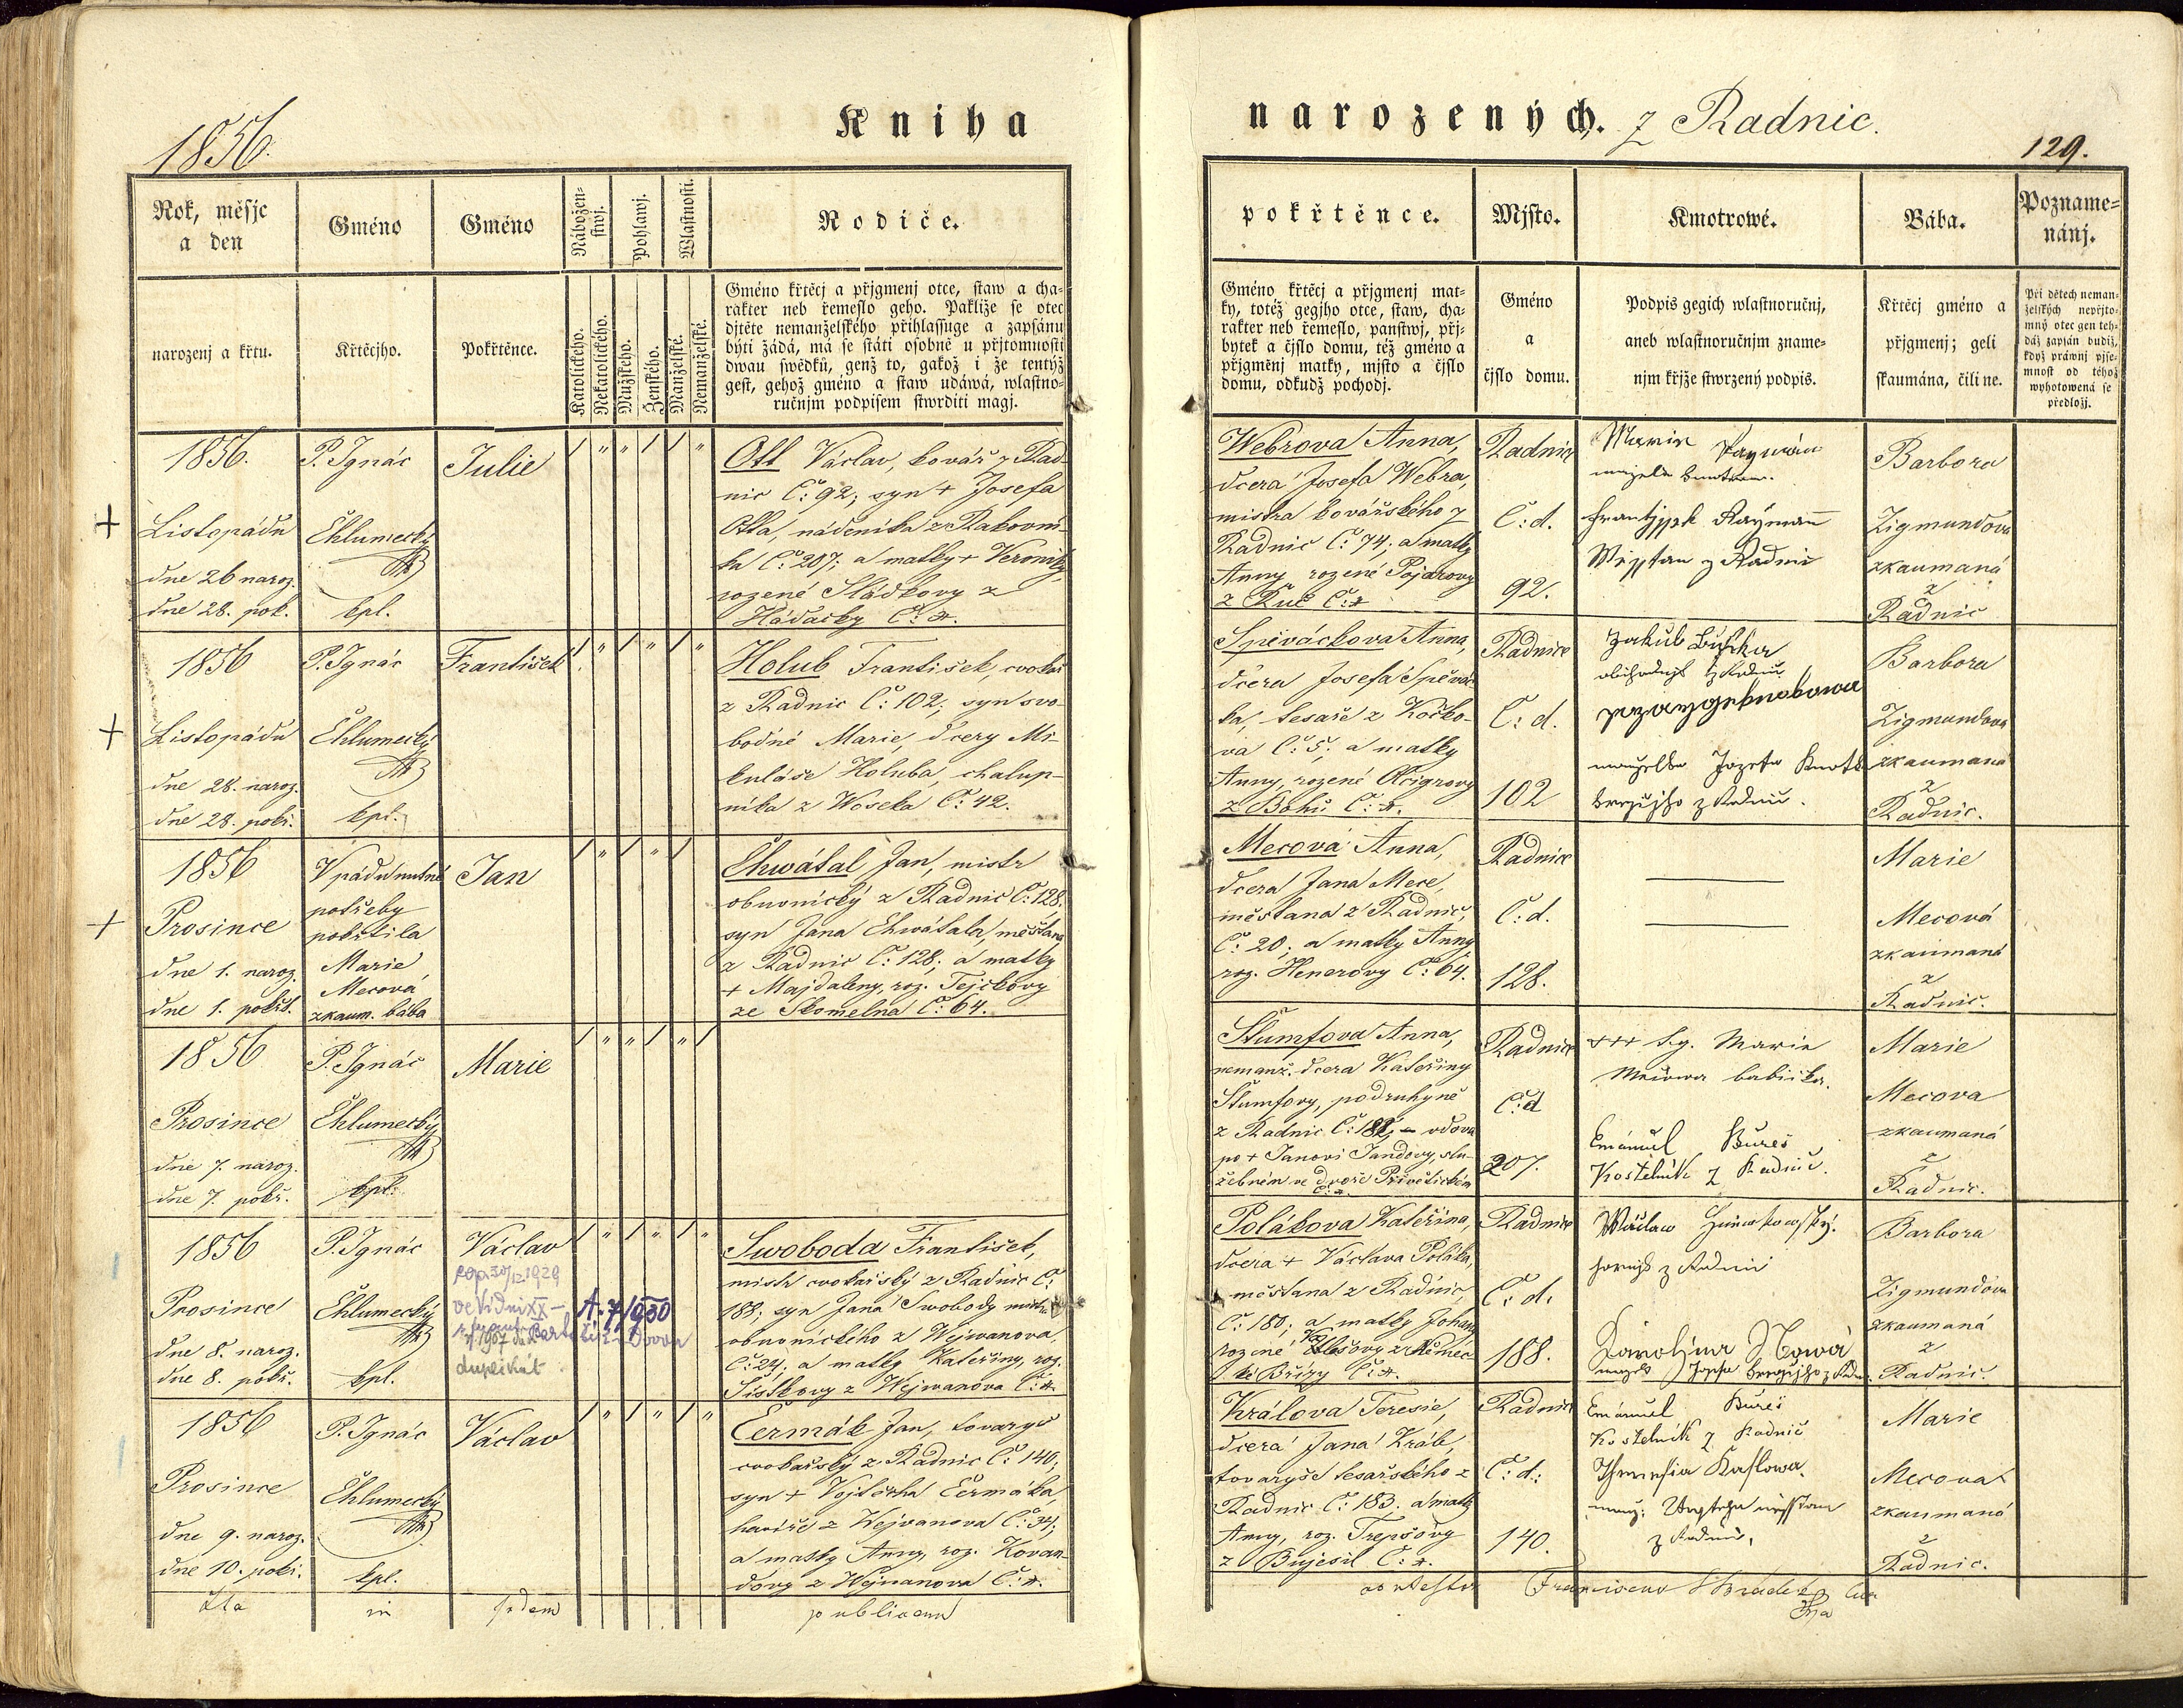 1856.
Kniha
Rok, měsjc
a den
Gméno
Gméno
Nábožen=
stwj.
Pohlawj.
Wlastnosti.
Rodiče.
narozenj a křtu.
Křtěcjho.
Pokřtěnce.
Katolického.
Nekatolického.
Mužského.
Ženského.
Manželské.
Nemanželské.
Gméno křtěcj a přjgmenj otce, staw a cha=
rakter neb řemeslo geho. Pakliže se otec
djtěte nemanželského přihlassuge a zapsánu
býti žádá, má se státi osobně u přjtomnosti
dwau swědků, genž to, gakož i že tentýž
gest, gehož gméno a staw udáwá, wlastno=
ručnjm podpisem stwrditi magj.
1856.
Listopádu
dne 26 naroz.
dne 28. pok.
P. Ignác
Chlumecký
kpl.
Julie
Ott Václav, kovář z Rad-
nic Č: 92; syn + Josefa
Otta, nádeníka z Rakovní-
ka Č: 207; a matky + Veroniky,
rozené Sládkovy z
Hádačky Č:
1856
Listopádu
dne 28. naroz.
dne 28. pokř.
P. Ignác
Chlumecký
kpl.
František
Holub František, cvokař
z Radnic Č: 102; syn svo-
bodné Marie, dcery Mi-
kuláše Holuba, chalup-
níka z Woseka Č: 42.
1856
Prosince
dne 1. naroz.
dne 1. pokřt.
V pádu nutné
potřeby
pokřtila
Marie
Mecová
zkaum. bába
Jan
Chwátal Jan, mistr
obuvnický z Radnic Č: 128.
syn Jana Chwátala, měšťana
z Radnic Č: 128; a matky
+ Majdaleny, roz. Tejčkovy
ze Skomelna Č: 64.
1856
Prosince
dne 7. naroz.
dne 7. pokř.
P. Ignác
Chlumecký
kpl.
Marie
1856
Prosince
dne 8. naroz.
dne 8. pokř.
P. Ignác
Chlumecký
kpl.
Václav
ve Vídni XX
duplikát
A. 7/1930
Swoboda František,
mistr cvokařský z Radnic Č:
188; syn Jana Swobody mistra
obuvnického z Wejwanova,
Č: 24; a matky Kateřiny, roz.
Šístkovy z Wejwanova Č:
1856
Prosince
dne 9. naroz.
dne 10. pokř.
P. Ignác
Chlumecký
kpl.
Václav
Čermák Jan, tovaryš
cvokařský z Radnic Č: 140;
syn + Vojtěcha Čermáka,
havíře z Wejvanova Č: 34;
a matky Anny, roz. Kovan-
dovy z Wejvanova Č:
Ita in fidem publicam
narozených. z Radnic.
129.
pokřtěnce.
Mjsto.
Kmotrowé.
Bába.
Pozname=
nánj.
Gméno křtěcj a přjgmenj mat=
ky, totéž gegjho otce, staw, cha=
rakter neb řemeslo, panstwj, přj=
bytek a čjslo domu, též gméno a
přjgměnj matky, mjsto a čjslo
domu, odkudž pochodj.
Gméno
a
čjslo domu.
Podpis gegich wlastnoručnj,
aneb wlastnoručnjm zname=
njm křjže stwrzený podpis.
Křtěcj gméno a
přjgmenj; geli
skaumána, čili ne.
Při dětech neman=
želských nepřjto=
mný otec gen teh=
dáž zapsán budiž,
když právnj pjse=
mnost od téhož
wyhotowená se
předložj.
Webrova Anna,
dcera Josefa Webra,
mistra kovářského z
Radnic Č: 74; a matky
Anny rozené Pojarovy
Radnic
Č: d.
92.
Marie Rayman
Frantyssek Raymann
z Radnic
Barbora
Zigmundova
zkaumaná
z
Radnic
Spiváčkova Anna,
dcera Josefa Spěváč-
ka, tesaře z Kočko-
va Č: 5; a matky
Anny, rozené
Radnice
Č: d.
102
Jakub
z Radnic.
Barbora
Zigmundova
zkaumaná
z
Radnic.
Mecová Anna,
dcera Jana Mece,
měšťana z Radnic,
Č: 20; a matky Anny
roz. Henerovy Č: 64.
Radnice
Č: d.
128.
Marie
Mecová
zkaumaná
z
Radnic.
Štumfova Anna,
nemanž. dcera Kateřiny
Štumfovy, podruhyně
z Radnic
po + Janovi Jandovy, slu-
žebném ve dvoře Přívětickém
Radnice
Č: d
207.
+++ Marie
babička.
Emanuel Bureš
Kostelník z Radnic.
Marie
Mecova
zkaumaná
z
Radnic.
Polákova Kateřina,
dcera + Václava Poláka,
měšťana z Radnic,
Č: 180; a matky Johany
rozené z Němec-
ké Břízy Č:
Radnice
Č: d.
188.
Wáclaw
z Radnic
Karolina Nowá
Barbora
Zigmundova
zkaumaná
z
Radnic.
Králova Teresie,
dcera Jana Krále,
tovaryše tesařského z
Radnic Č: 183. a matky
Anny, roz. Trepšovy
z Bujesil Č:
Radnice
Č: d:
140.
Emanuel Bureš
Kostelník z Radnic
Theresia Kaslowa
z Radnic.
Marie
Mecova
zkaumaná
z
Radnic.